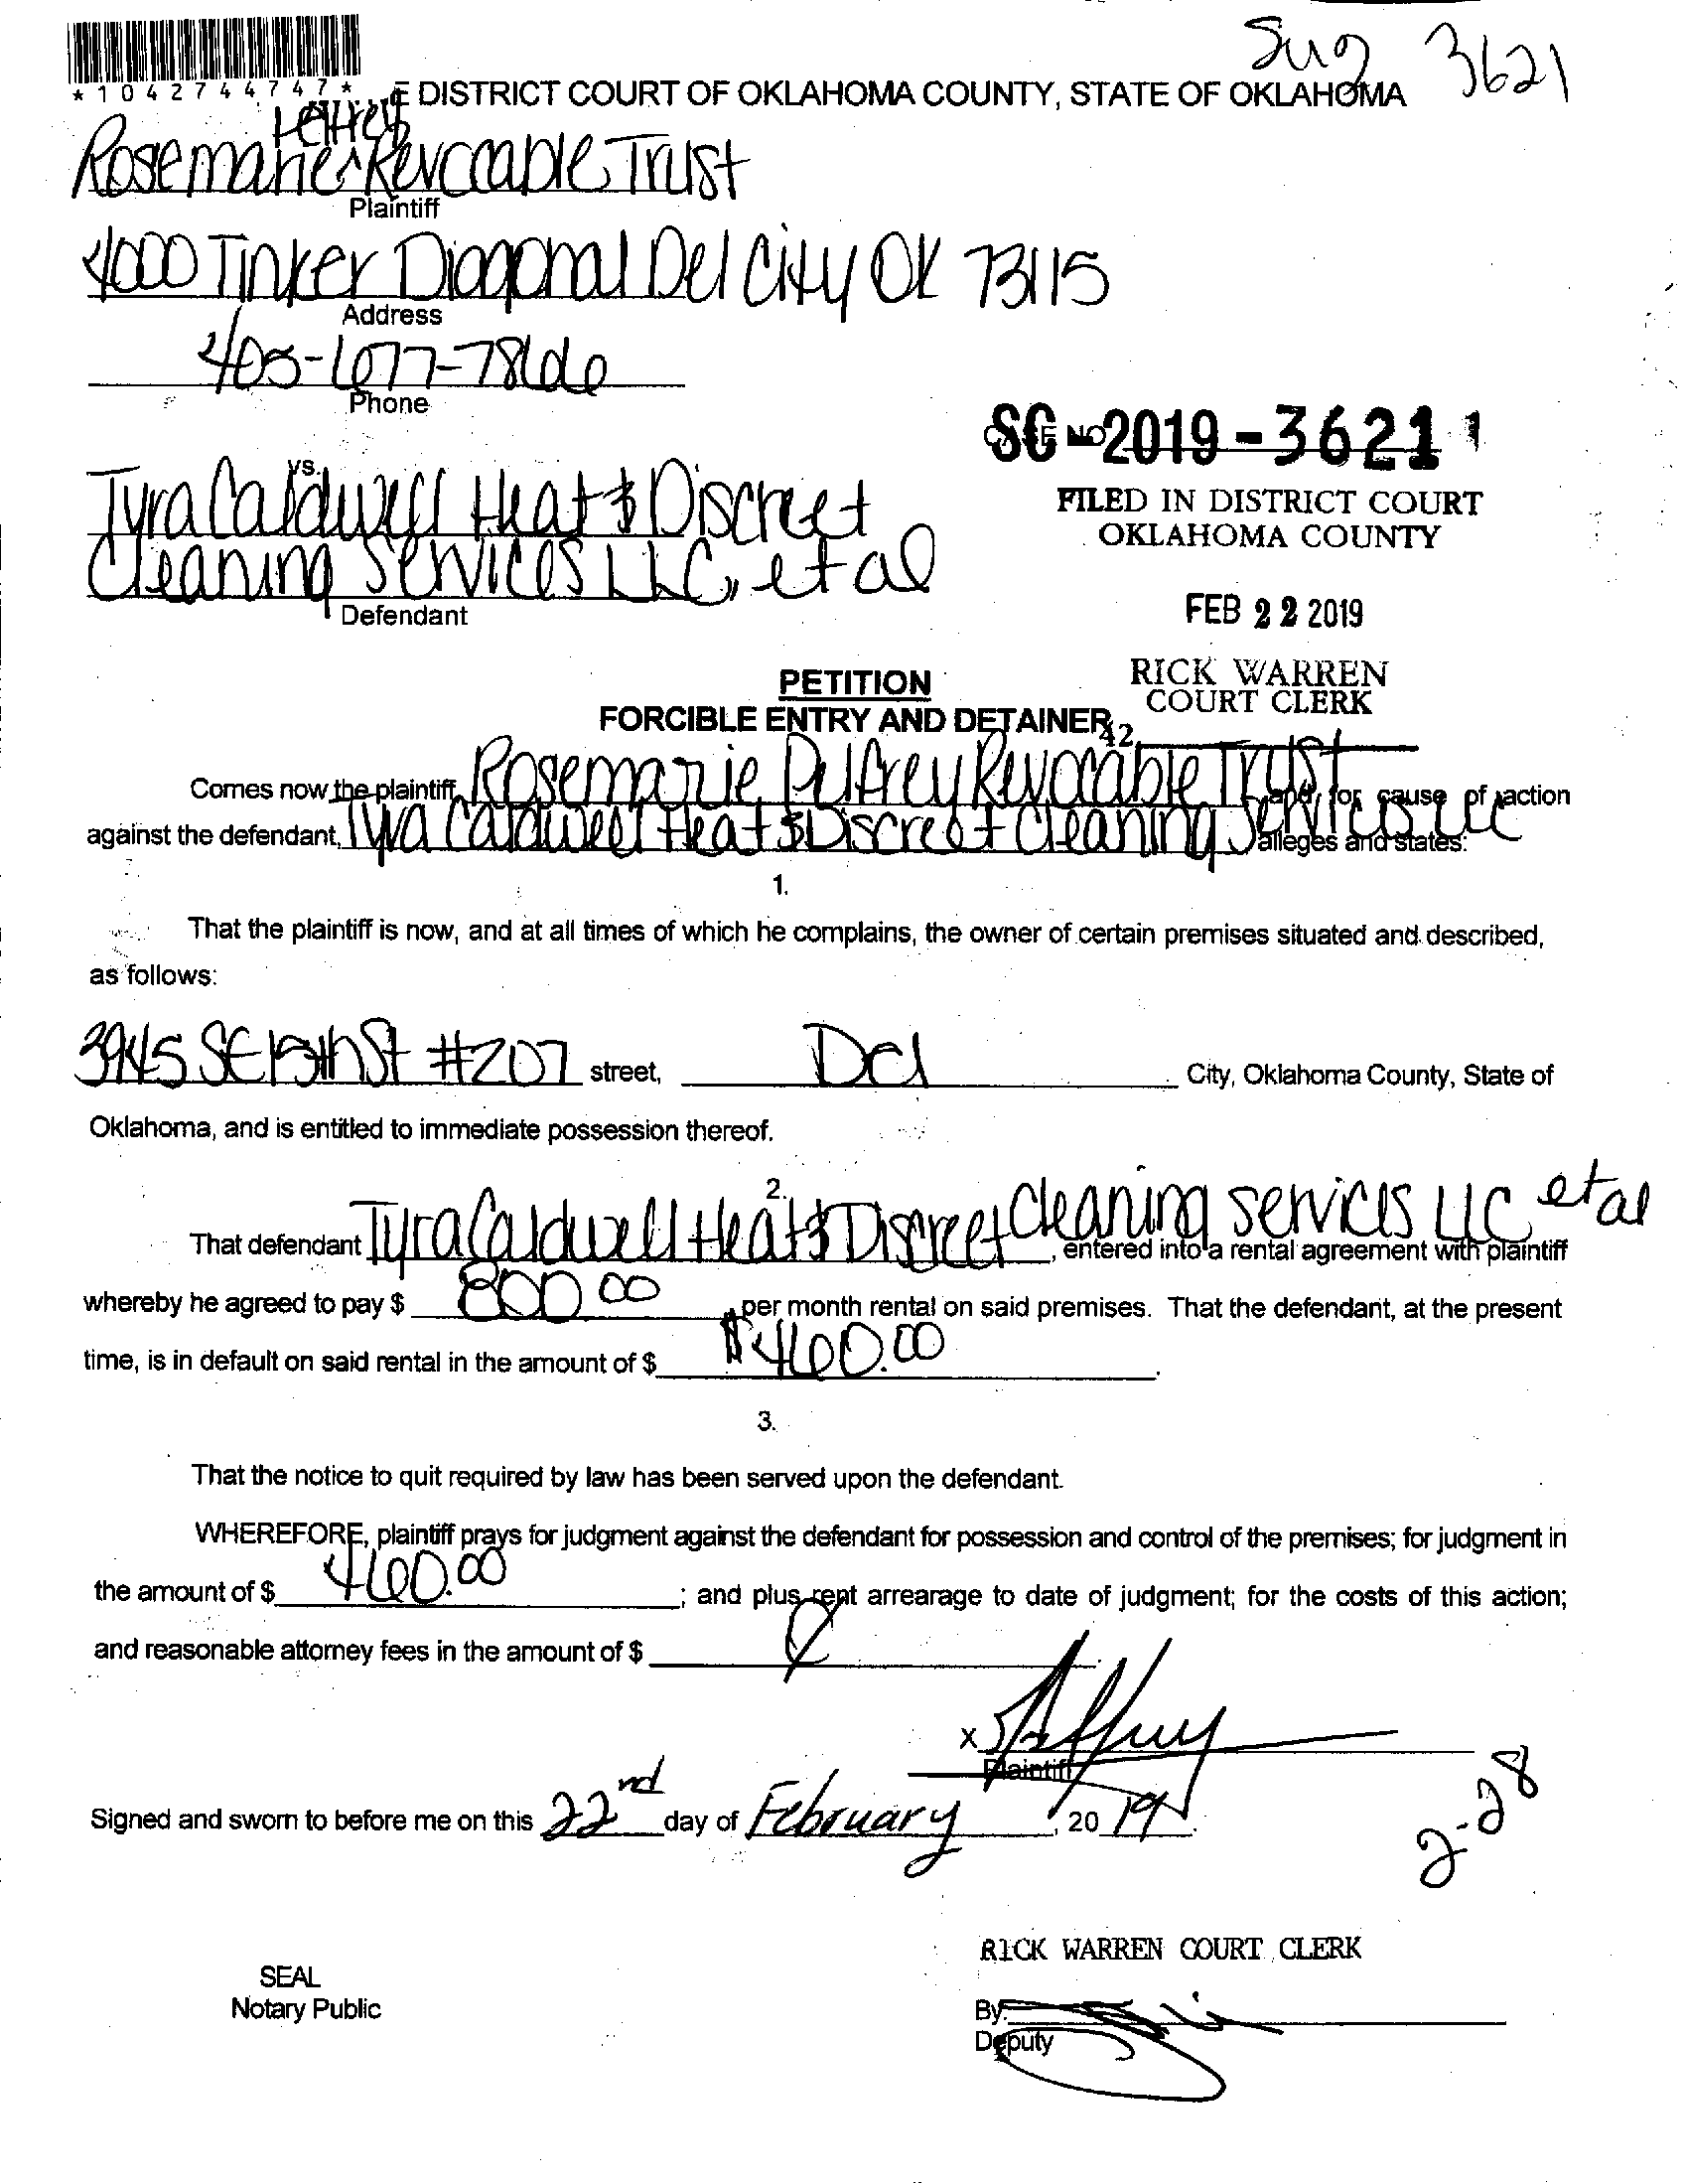 Sug 3621
*1042744747*
E DISTRICT COURT OF OKLAHOMA COUNTY, STATE OF OKLAHOMA
Rosemarie Revocable Trust
Plaintiff
4000 Tinker Diagonal Del City OK 73115
Address
405-677-7866
Phone
SC-2019-3621
CASE NO
FILED IN DISTRICT COURT
OKLAHOMA COUNTY
vs.
Tyra Caldwell Heat & Discreet
Cleaning Services LLC, et al
Defendant
FEB 22 2019
RICK WARREN
COURT CLERK
PETITION
FORCIBLE ENTRY AND DETAINER
42
Comes now the plaintiff, Rosemarie Pelfrey Revocable Trust and, for cause of action
against the defendant, Tyra Caldwell Heat & Discreet Cleaning Services LLC alleges and states:
1.
That the plaintiff is now, and at all times of which he complains, the owner of certain premises situated and described,
as follows:
3945 SE 15th St #207 street, Del City, Oklahoma County, State of
Oklahoma, and is entitled to immediate possession thereof.
2.
That defendant Tyra Caldwell Heat & Discreet Cleaning services LLC et al, entered into a rental agreement with plaintiff
whereby he agreed to pay $ 800.00 per month rental on said premises. That the defendant, at the present
time, is in default on said rental in the amount of $ $460.00.
3.
That the notice to quit required by law has been served upon the defendant.
WHEREFORE, plaintiff prays for judgment against the defendant for possession and control of the premises; for judgment in
the amount of $ 460.00; and plus rent arrearage to date of judgment; for the costs of this action;
and reasonable attorney fees in the amount of $
X
Plaintiff
Signed and sworn to before me on this 22nd day of February, 2019.
2-28
RICK WARREN COURT CLERK
SEAL
Notary Public
By:
Deputy